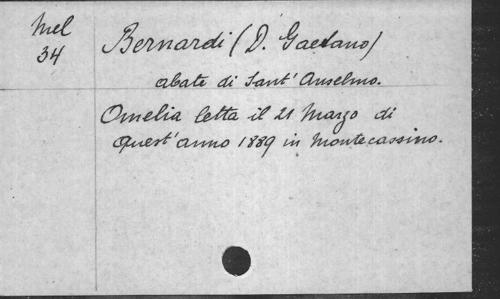 Mel
34
Bernardi (D. Gaetano)
abate di Sant' Anselmo.
Omelia letta il 21 Marzo di
quest' anno 1889 in Montecassino.